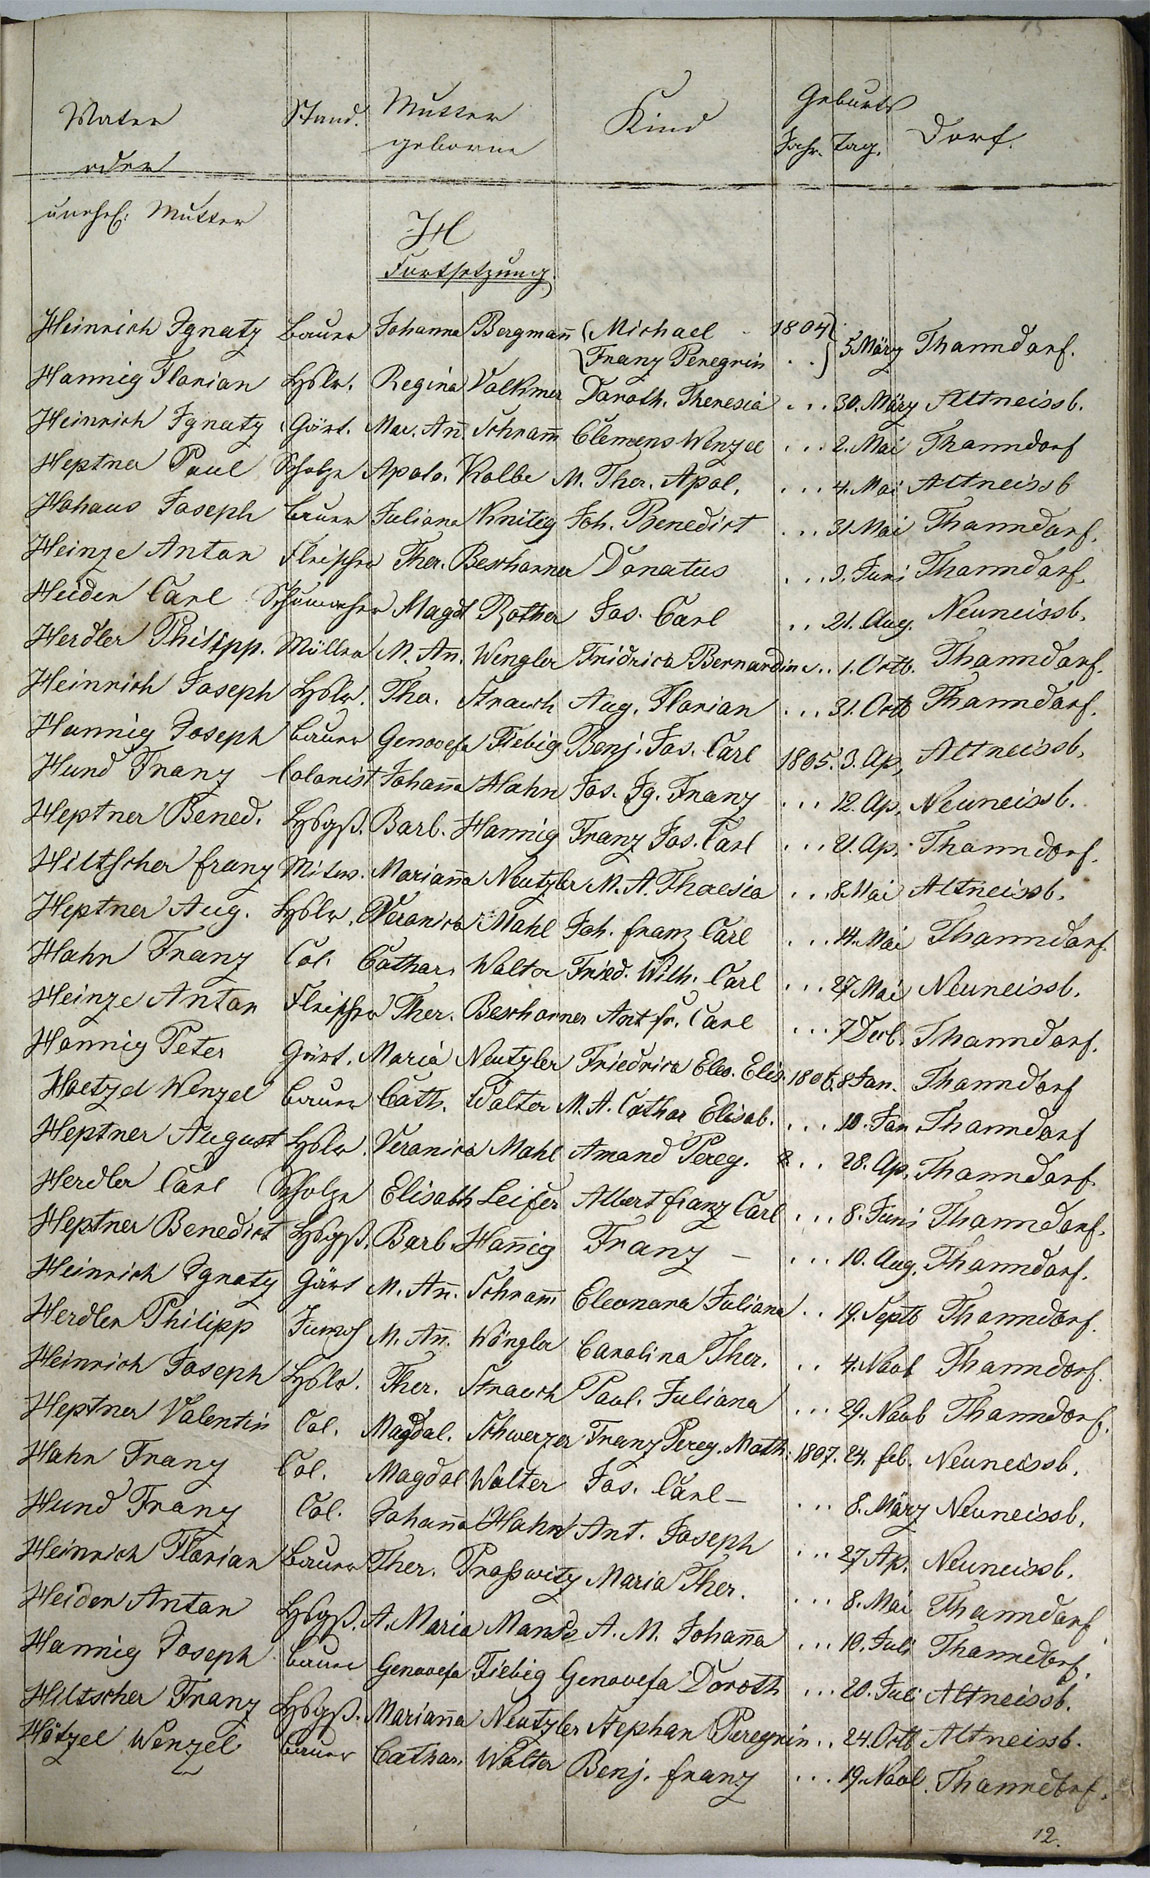 Vater Stand. Mutter Kind Geburts Dorf.
oder geborne Jahr. Tag.
unehl. Mutter
H
Fortsetzung.
Heinrich Ignatz Bauer Johanna Bergmañ Michael 1804
Franz Peregrin . . 5. März Thanndorf.
Hannig Florian Hslr. Regina Volkmer Doroth. Theresia . . . 30. März Altneissb.
Heinrich Ignatz Gärt. Mar. Añ Schram̃ Clemens Wenzel . . . 2. Mai Thanndorf
Heptner Paul Scholze Apolo. Kolbe M. Ther. Apol. . . . 4. Mai Altneissb
Hohaus Joseph Bauer Juliana Knitig Joh. Benedict . . . 31. Mai Thanndorf.
Heinze Anton Fleischer Ther. Beschorner Donatus . . . 3. Juni Thanndorf.
Heiden Carl Schumacher Magdl Rother Jos. Carl . . 21. Aug. Neuneissb.
Herdler Philipp. Müller M. An. Wengler Fridrica Bernardine . . 1. Octb. Thanndorf.
Heinrich Joseph Hslr. The. Strauch Aug. Florian . . . 31. Octb Thanndorf.
Hannig Joseph Bauer Genovefa Fiebig Benj. Jos. Carl 1805. 3. Ap. Altneissb.
Hund Franz Colonist Johaña Hahn Jos. Ig. Franz . . . 12. Ap. Neuneissb.
Heptner Bened. Hsgß. Barb. Hannig Franz Jos. Carl . . . 21. Ap. Thanndorf.
Hiltscher franz Mitw. Mariaña Neutzler M. A. Thresia . . . 8. Mai Altneissb.
Heptner Aug. Hslr. Veronica Mahl Joh. franz Carl . . . 14. Mai Thanndorf.
Hahn Franz Col. Cathar. Walter Fried. Wilh. Carl . . . 27 Mai Neuneissb.
Heinze Anton Fleischer Ther. Beschorner Ant fr. Carl . . . 7 Decb. Thanndorf.
Hannig Peter Gärt. Maria Neutzler Friedrica Eleo. Elis. 1806. 8 Jan. Thanndorf
Hoetzel Wenzel Bauer Cath. Walter M. A. Cathar Elisab. . . . 10. Jan Thanndorf
Heptner August Hslr. Veronica Mahl Amand Pereg. . . 28. Ap. Thanndorf.
Herdler Carl Scholze Elisabh Leifer Albert franz Carl . . . 8. Juni Thanndorf.
Heptner Benedict Hsgß. Barb Hañig Franz – . . . 10. Aug. Thanndorf.
Heinrich Ignatz Gärt M. Añ. Schram̃ Eleonora Juliana . . 19. Septb Thanndorf.
Herdler Philipp M. Añ. Wöngler Carolina Ther. . . 4. Novb Thanndorf.
Heinrich Joseph Hslr. Ther. Strauch Paul. Juliana . . . 29. Novb Thanndorf.
Heptner Valentin Col. Magdal. Schwerzer Franz Pereg. Math. 1807. 24. feb. Neuneissb.
Hahn Franz Col. Magdal Walter Jos. Carl – . . . 8. März Neuneissb.
Hund Franz Col. Johaña Hahn Ant. Joseph . . . 27 Ap. Neuneissb.
Heinrich Florian Bauer Ther. Proßwitz Maria Ther. . . . 8. Mai Thanndorf
Heiden Anton Hsgß. A. Maria A. M. Johaña . . . 10. Juli Thanndorf.
Hannig Joseph Bauer Genovefa Fiebig Genovefa Doroth . . . 20. Juli Altneissb.
Hiltscher Franz Hsgß. Mariaña Neutzler Stephan Peregrin . . 24. Octb Altneissb.
Hötzel Wenzel Bauer Cathar. Walter Benj. franz . . . 19. Novb. Thanndorf.
12.